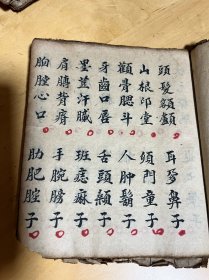 頭髮額顱
耳鼻子
山根印堂
門童子
顴骨腮斗
人肿鬍子
牙齒口唇
舌頭子
墨汗
班痣麻子
肩膊背脊
手腕膀子
胸膛心口
肋肥腔子